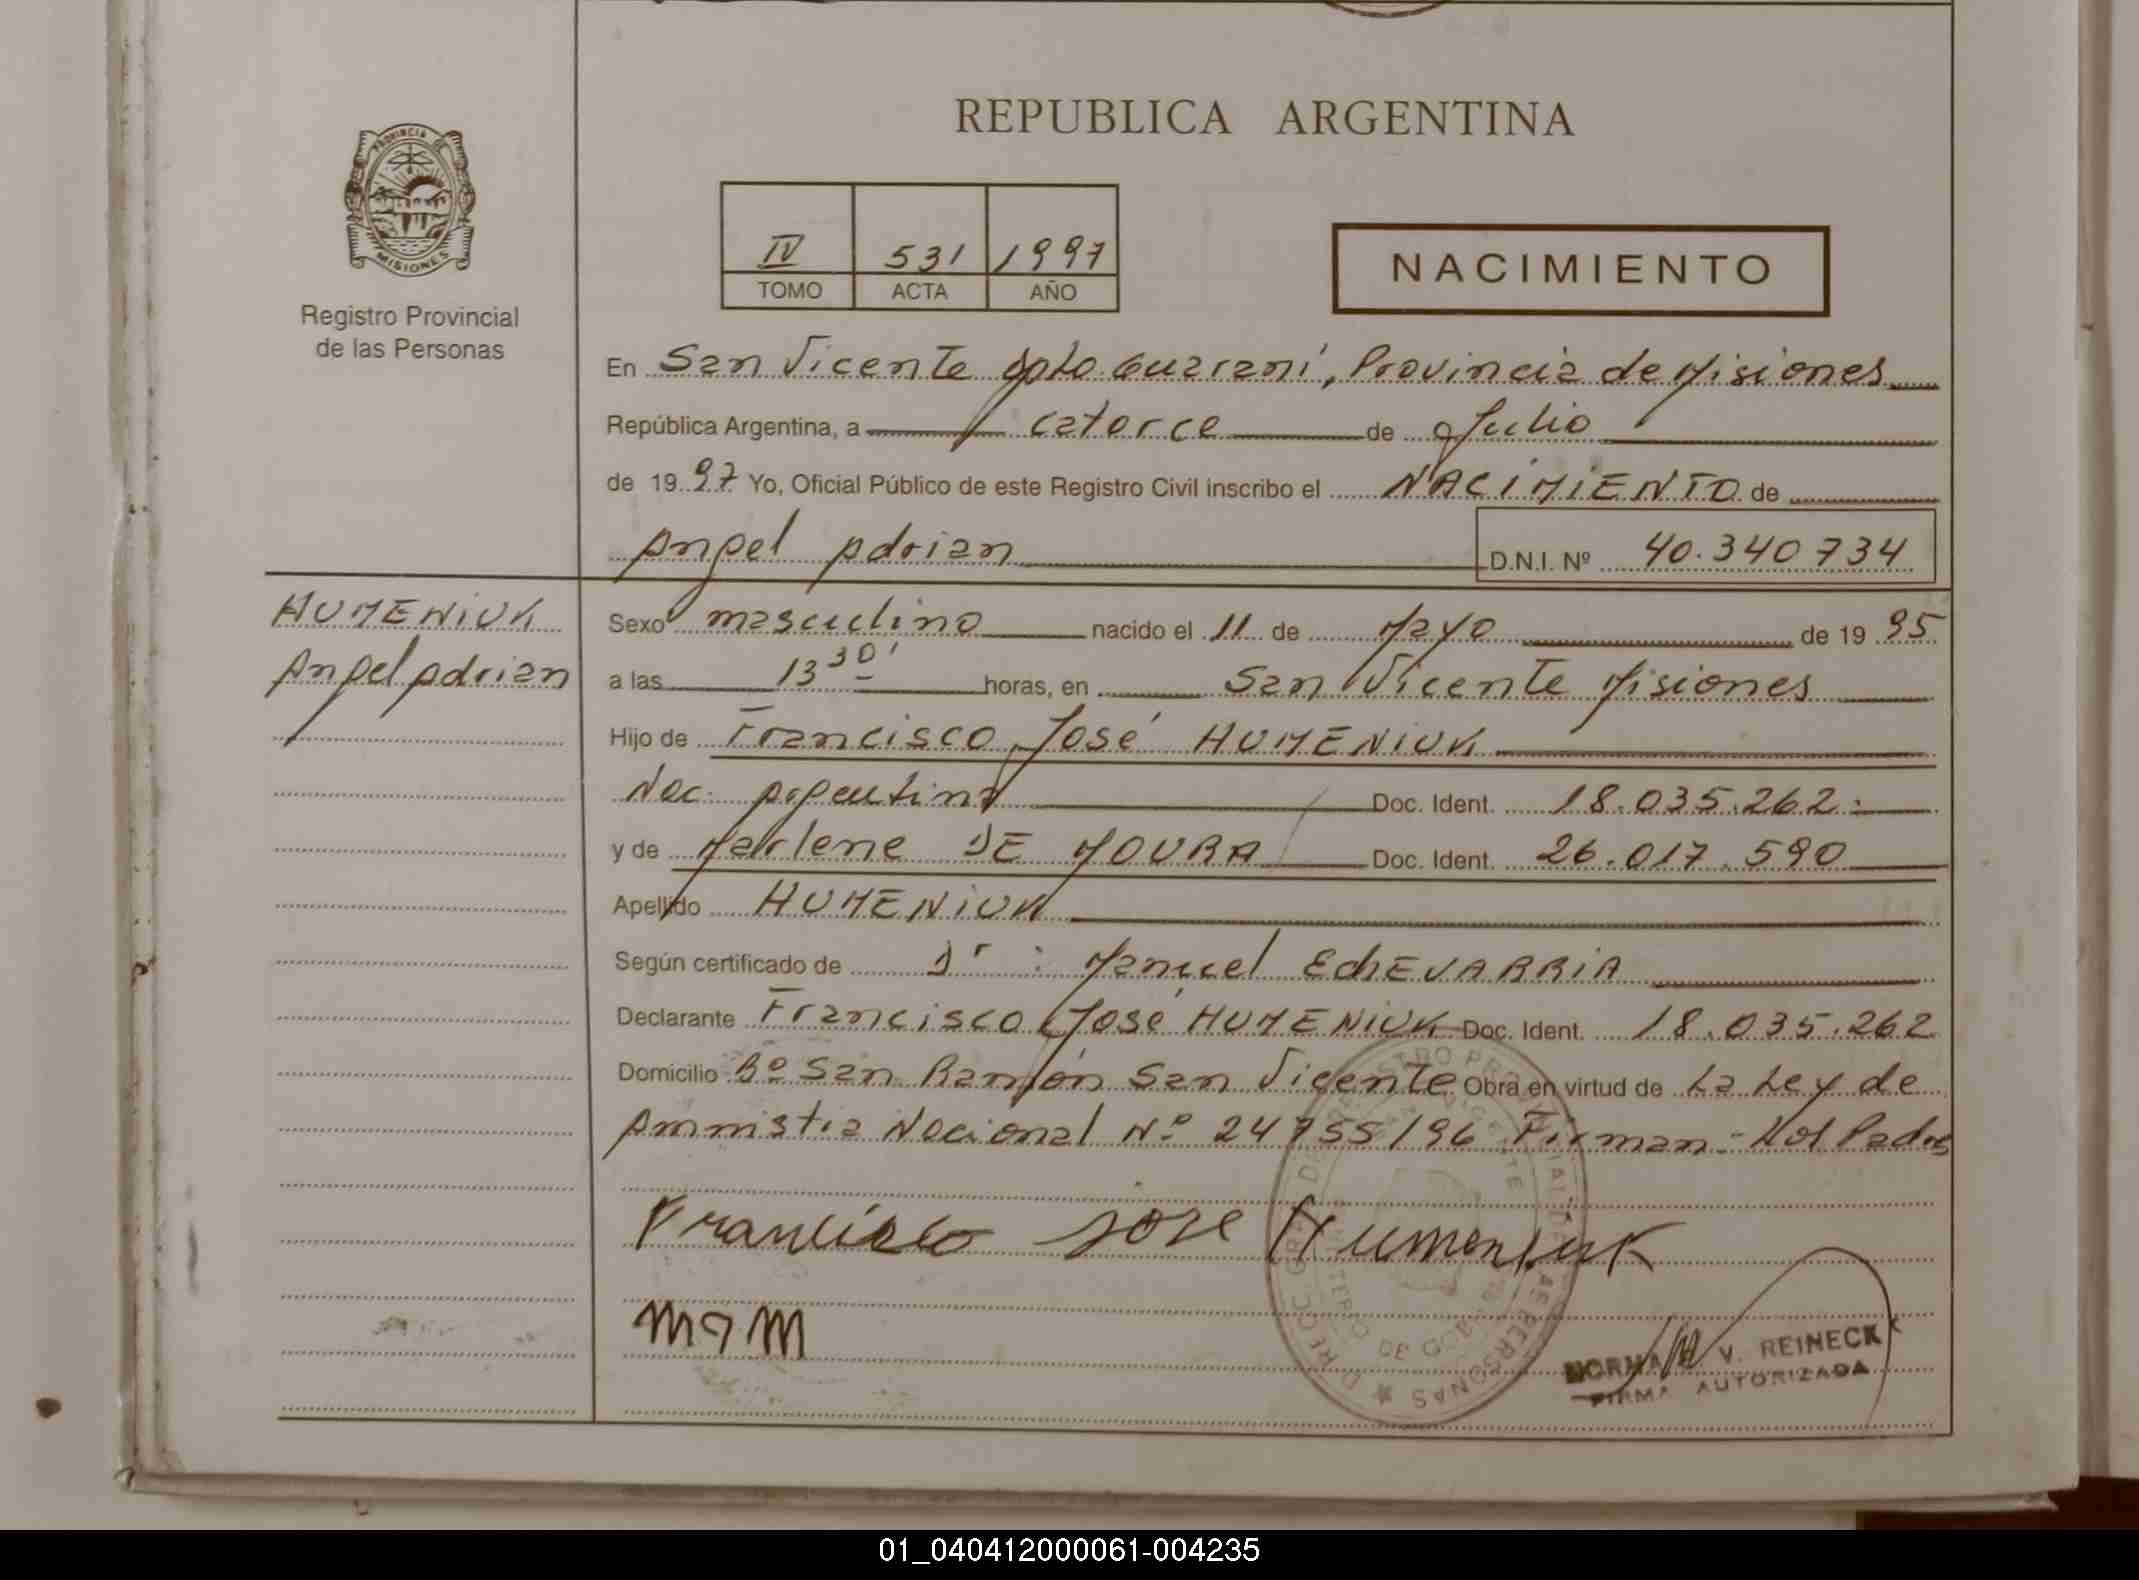 REPUBLICA ARGENTINA
PROVINCIA DE
MISIONES
Registro Provincial
de las Personas
IV 531 1997
TOMO ACTA AÑO
NACIMIENTO
En San Vicente Dpto. Guaraní, Provincia de Misiones
República Argentina, a catorce de Julio
de 1997 Yo, Oficial Público de este Registro Civil inscribo el NACIMIENTO de
Angel Adrian
D.N.I. Nº 40.340734
HUMENIUK
Angel Adrian
Sexo masculino nacido el 11 de Mayo de 1995
a las 13 30' horas, en San Vicente Misiones
Hijo de Francisco José HUMENIUK
Nac. Argentino Doc. Ident. 18.035.262
y de Marlene DE MOURA Doc. Ident. 26.017.590
Apellido HUMENIUK
Según certificado de Dr: Manuel EchEVARRIA
Declarante Francisco José HUMENIUK Doc. Ident. 18.035.262
Domicilio Bº San Ramón San Vicente Obra en virtud de La Ley de
Ammistia Nacional Nº 24755/96 Firman: Los Padres
Francisco Jose Humeniuk
NORMA V. REINECK
FIRMA AUTORIZADA
01_040412000061-004235